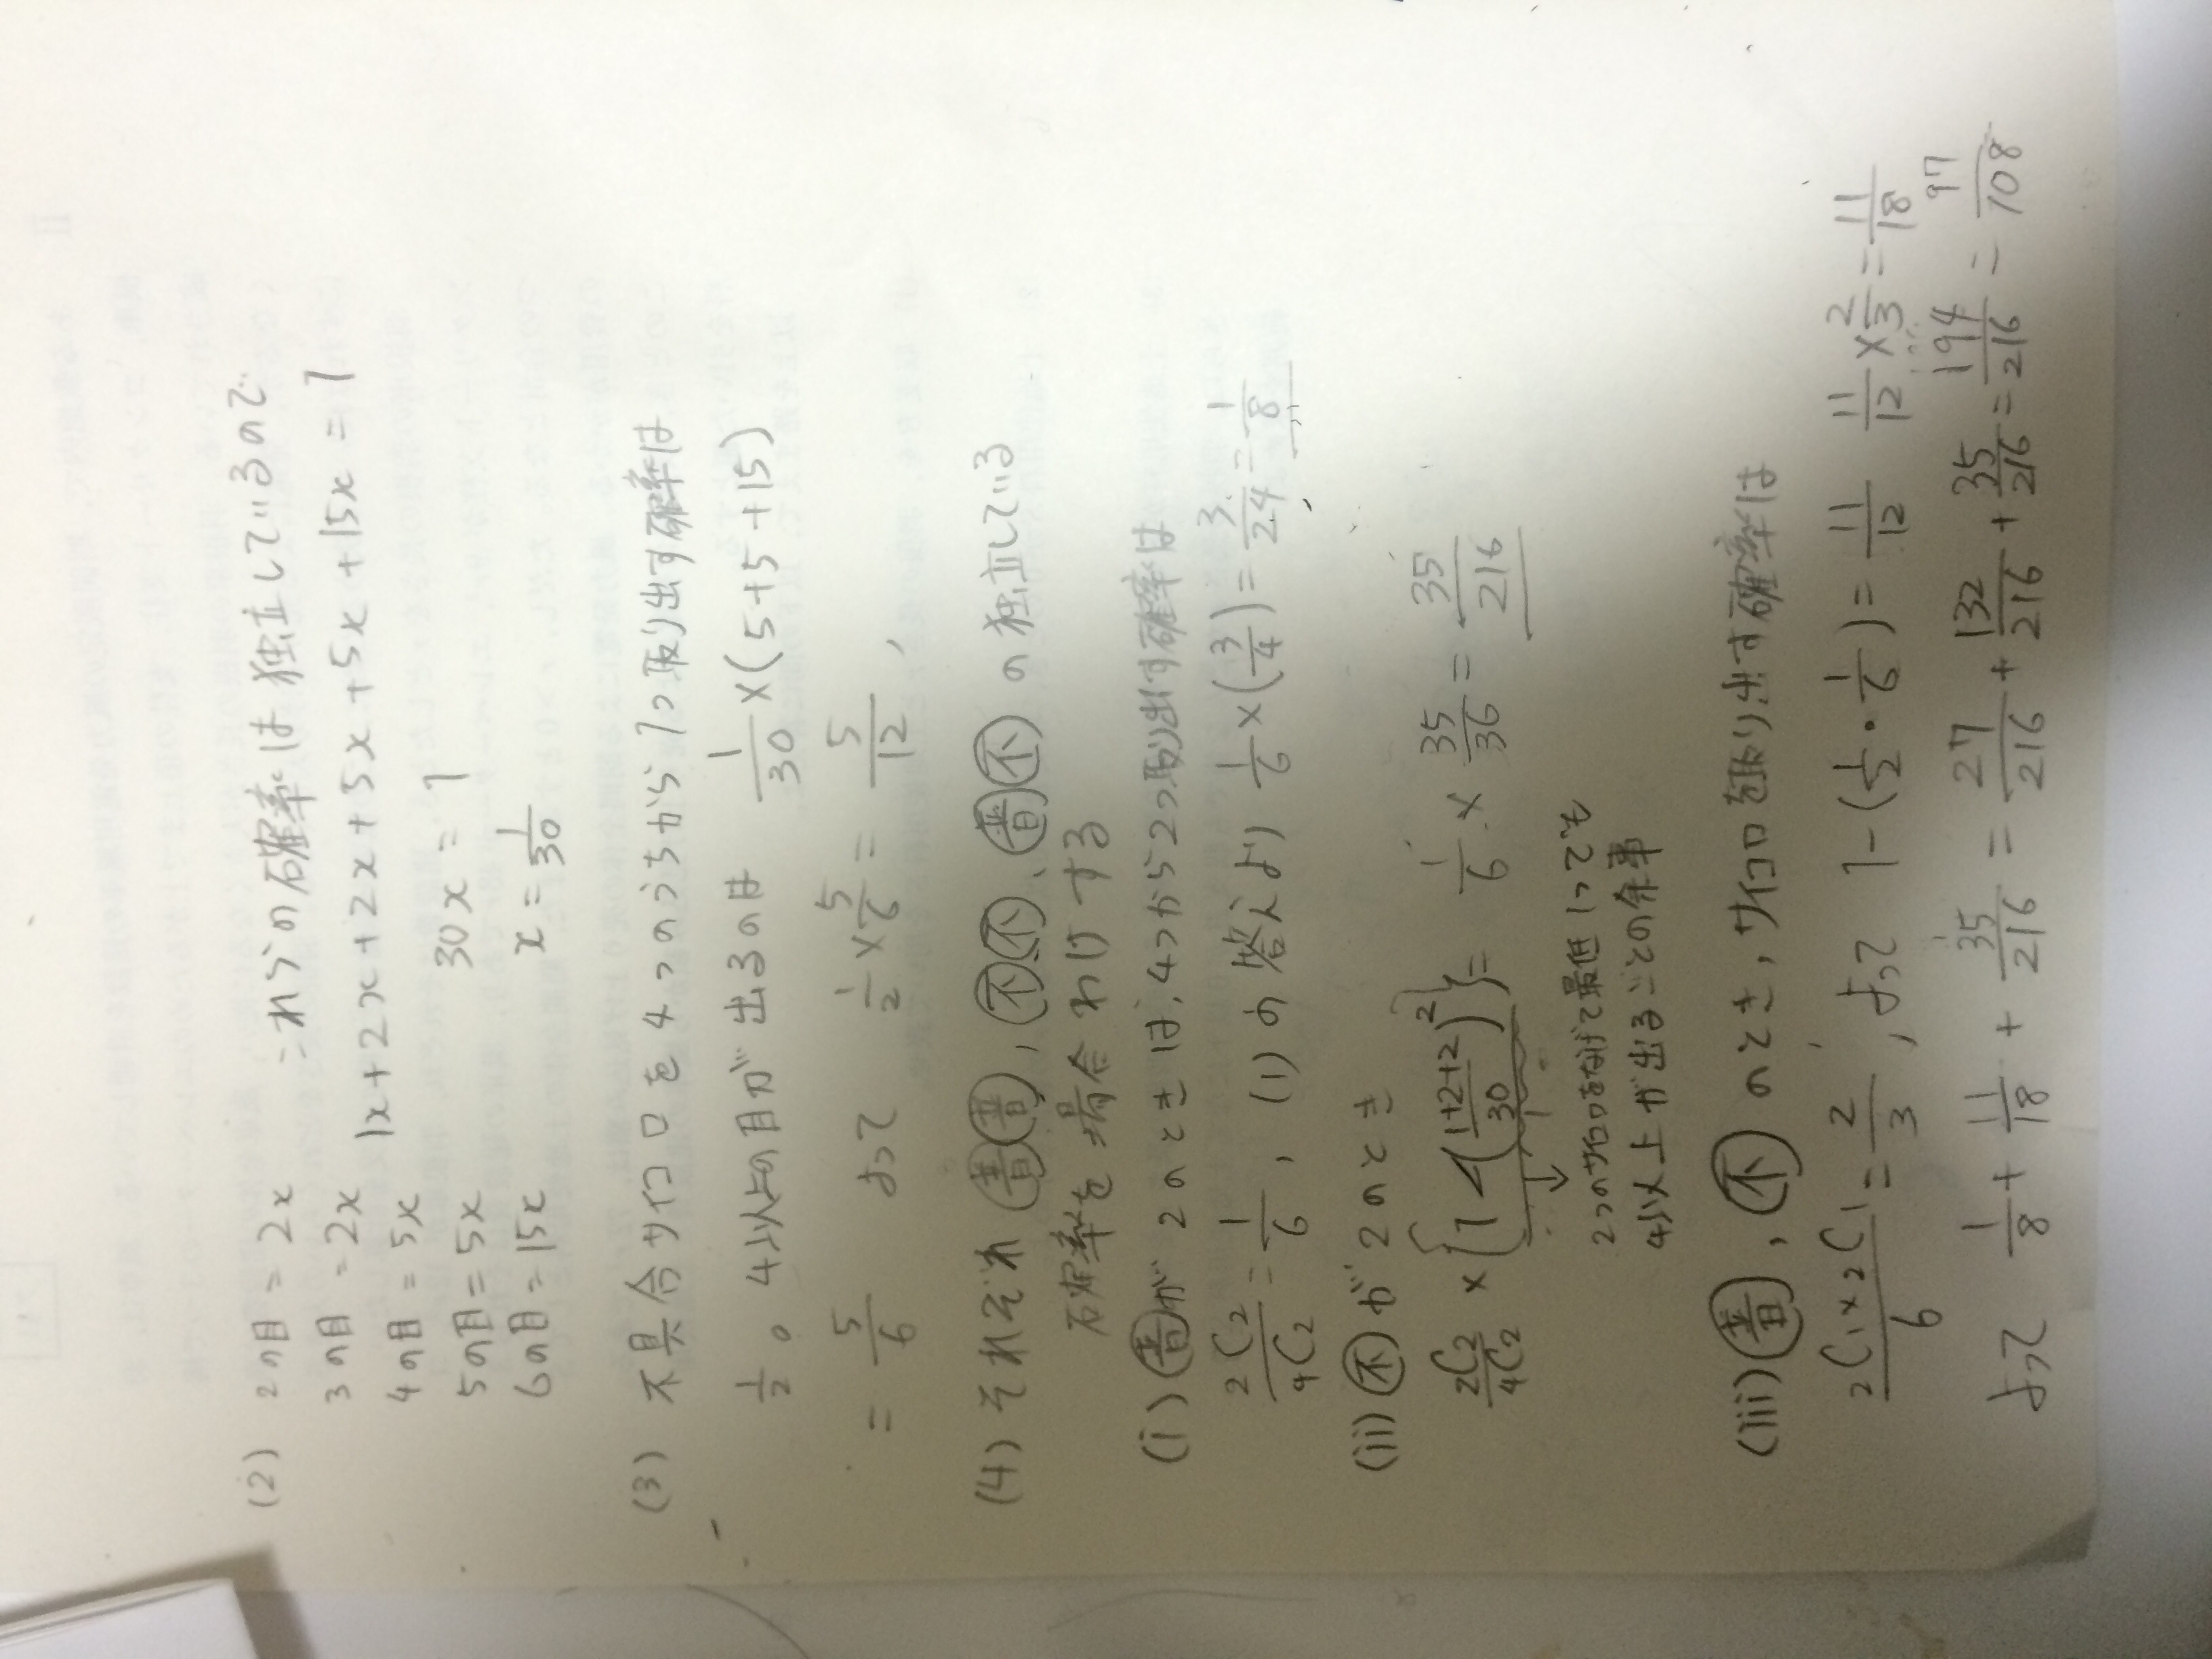 (2) 2の目=2x これらの確率は独立しているので
3の目=2x 1x+2x+2x+5x+5x+15x=1
4の目=5x
5の目=5x 30x=1
6の目=15x x=1/30
(3) 不具合サイコロを4つのうちから1つ取り出す確率は
1/2。4以上の目が出るのは 1/30×(5+5+15)
=5/6 よって 1/2×5/6=5/12,
(4) それぞれ(普)(普),(不)(不)、(普)(不)の独立している
確率を場合わけする
(i) (普)が2のときは、4つから2つ取り出す確率は
2C2/4C2=1/6, (1)の答えより 1/6×(3/4)=3/24=1/8
(ii) (不)が2のとき
2C2/4C2×{1-((1+2+2)/30)^2}= 1/6×35/36=35/216
2つのサイコロをなげて最低1つでも
4以上が出ることの余事
(iii) (普),(不)のとき,サイコロを取り出す確率は
2C1×2C1/6=2/3, よって 1-(1/2・1/6)=11/12 11/12×2/3=11/18
よって 1/8+11/18+35/216=27/216+132/216+35/216=194/216=97/108